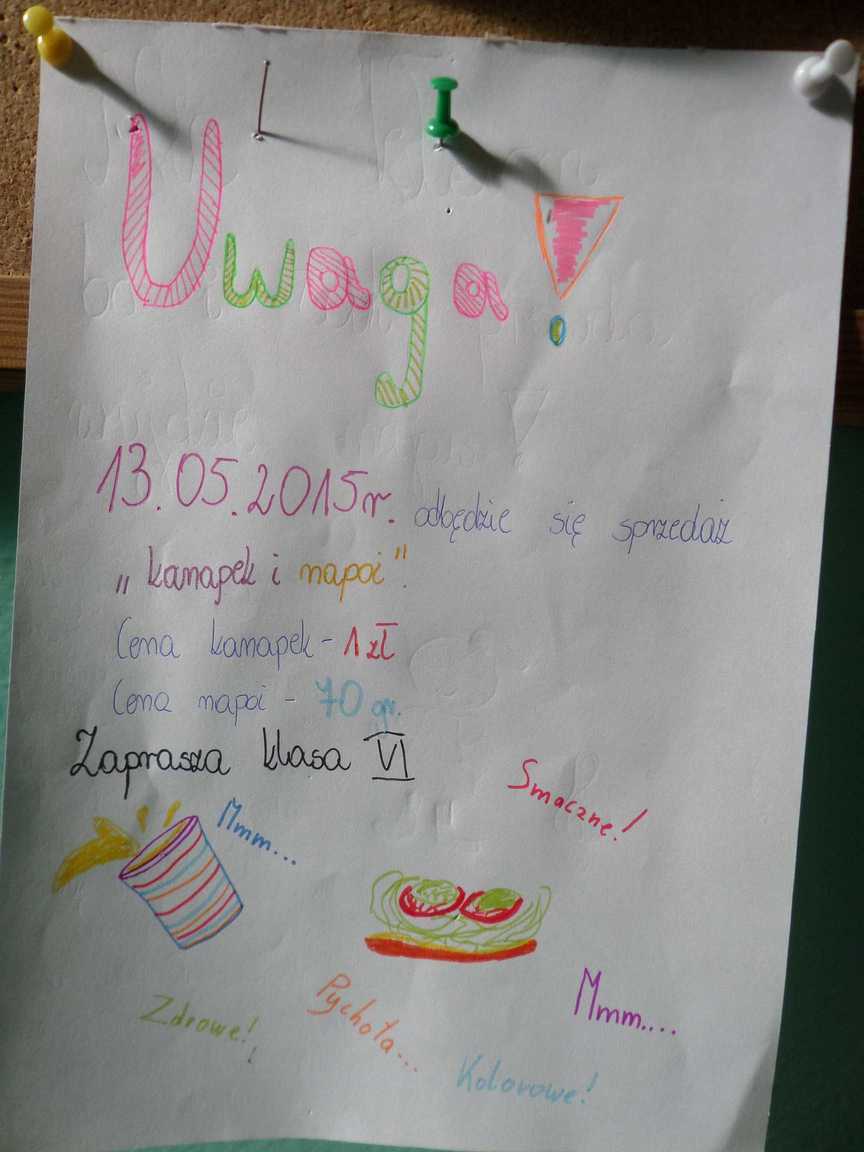 Uwaga!
13.05.2015r. odbędzie się sprzedaż
„kanapek i napoi".
Cena kanapek - 1 zł
Cena napoi - 70 gr.
Zaprasza klasa VI
Smaczne!
Mmm...
Mmm....
Pychota...
Zdrowe!
Kolorowe!